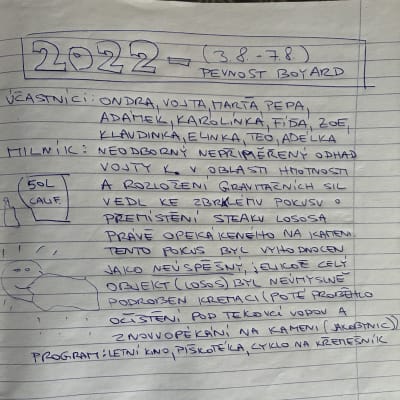 2022 - (3.8. - 7.8.)
PEVNOST BOYARD
ÚČASTNÍCI: ONDRA, VOJTA, MARŤA, PEPA,
ADÁMEK, KAROLÍNKA, FÍĎA, ZOE,
KLAUDINKA, ELINKA, TEO, ADÉLKA
MILNÍK: NEODBORNÝ NEPŘIMĚŘENÝ ODHAD
VOJTY K. V OBLASTI HMOTNOSTI
A ROZLOŽENÍ GRAVITAČNÍCH SIL
VEDL KE ZBRKLÉMU POKUSU O
PŘEMÍSTĚNÍ STEAKU LOSOSA
PRÁVĚ OPÉKANÉHO NA KAMENI.
TENTO POKUS BYL VYHODNOCEN
JAKO NEÚSPĚŠNÝ, JELIKOŽ CELÝ
OBJEKT (LOSOS) BYL NEÚMYSLNĚ
PODROBEN KREMACI (POTÉ PROBĚHLO
OČIŠTĚNÍ POD TEKOUCÍ VODOU A
ZNOVUOPÉKÁNÍ NA KAMENI (JAKOBTNIC))
PROGRAM: LETNÍ KINO, PIŠKOTÉKA, CYKLO NA KŘEMEŠNÍK
50L